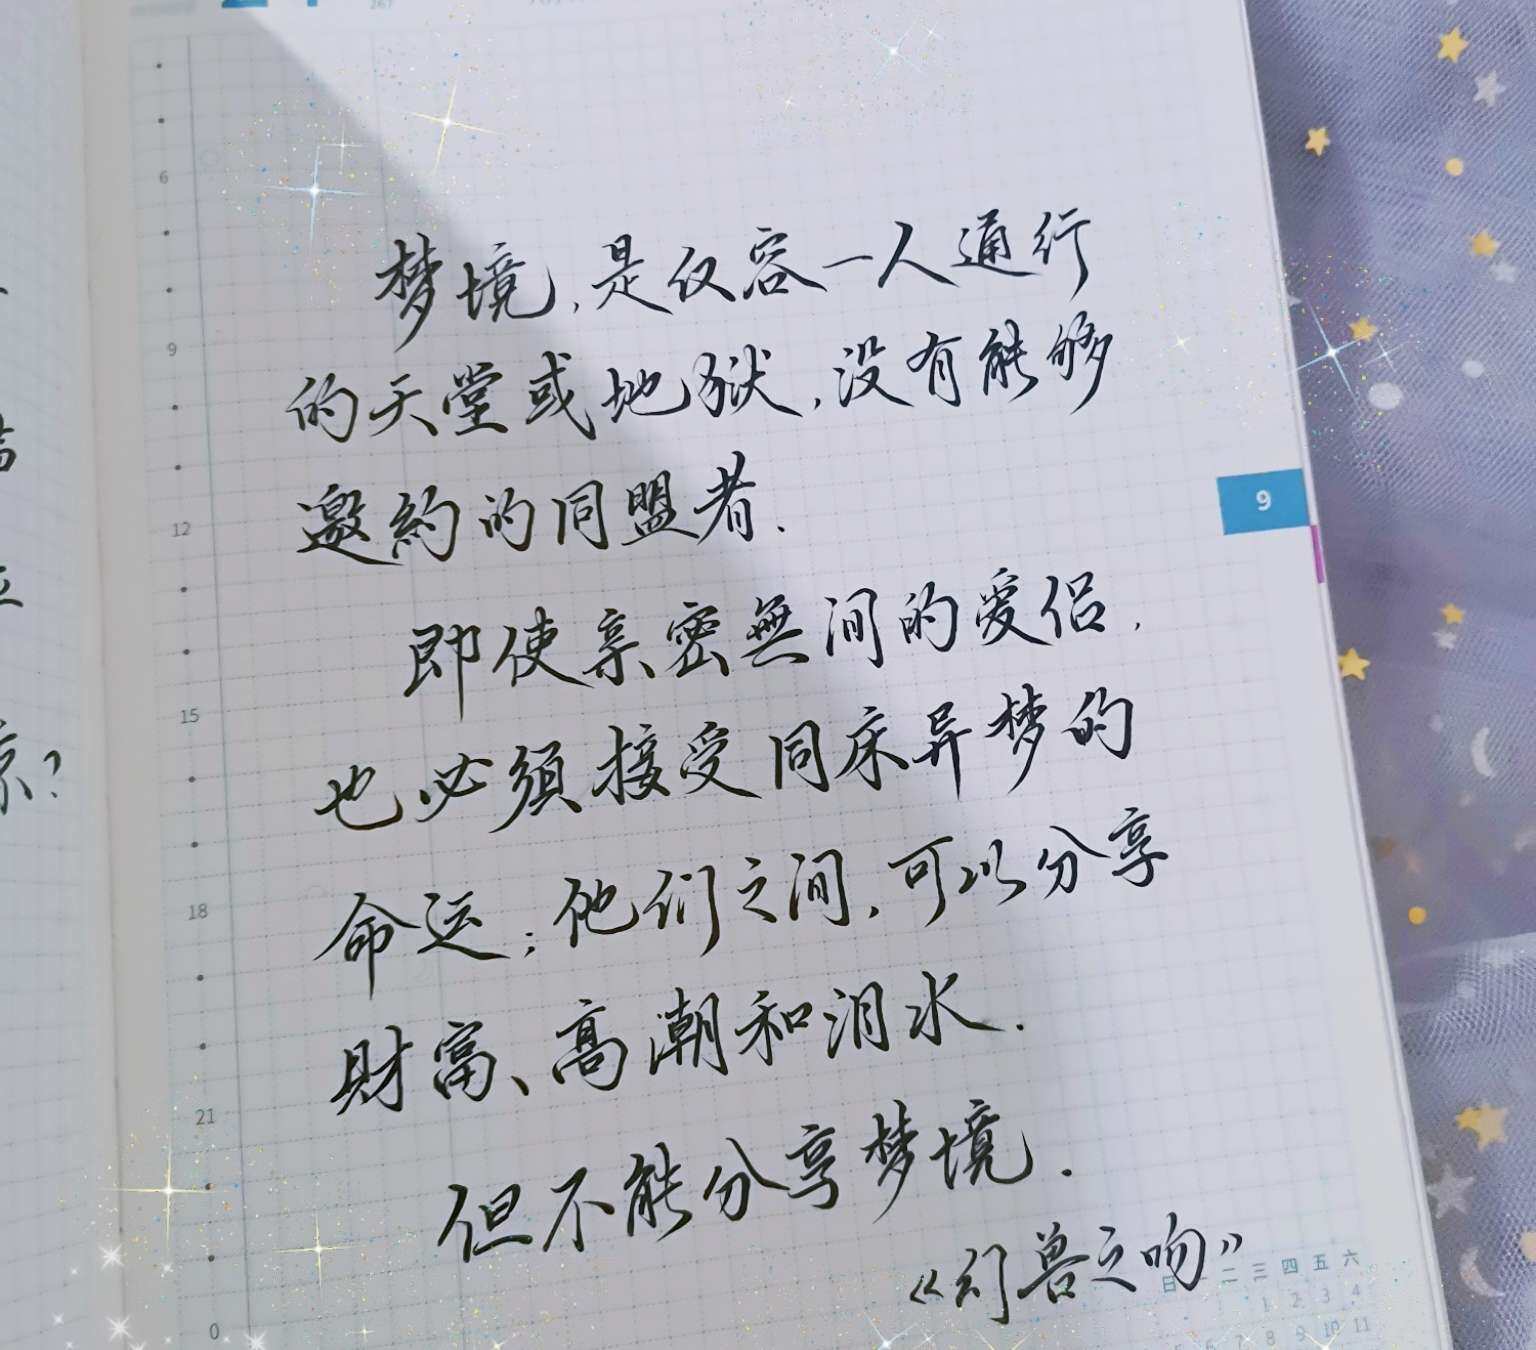 267
6
9
12
15
18
21
0
梦境,是仅容一人通行
的天堂或地狱,没有能够
邀約的同盟者.
即使亲密無间的爱侣,
也必须接受同床异梦的
命运;他们之间,可以分享
財富、高潮和泪水.
但不能分享梦境.
《幻兽之吻》
9
日 一 二 三 四 五 六
1 2 3 4
7 8 9 10 11
京?